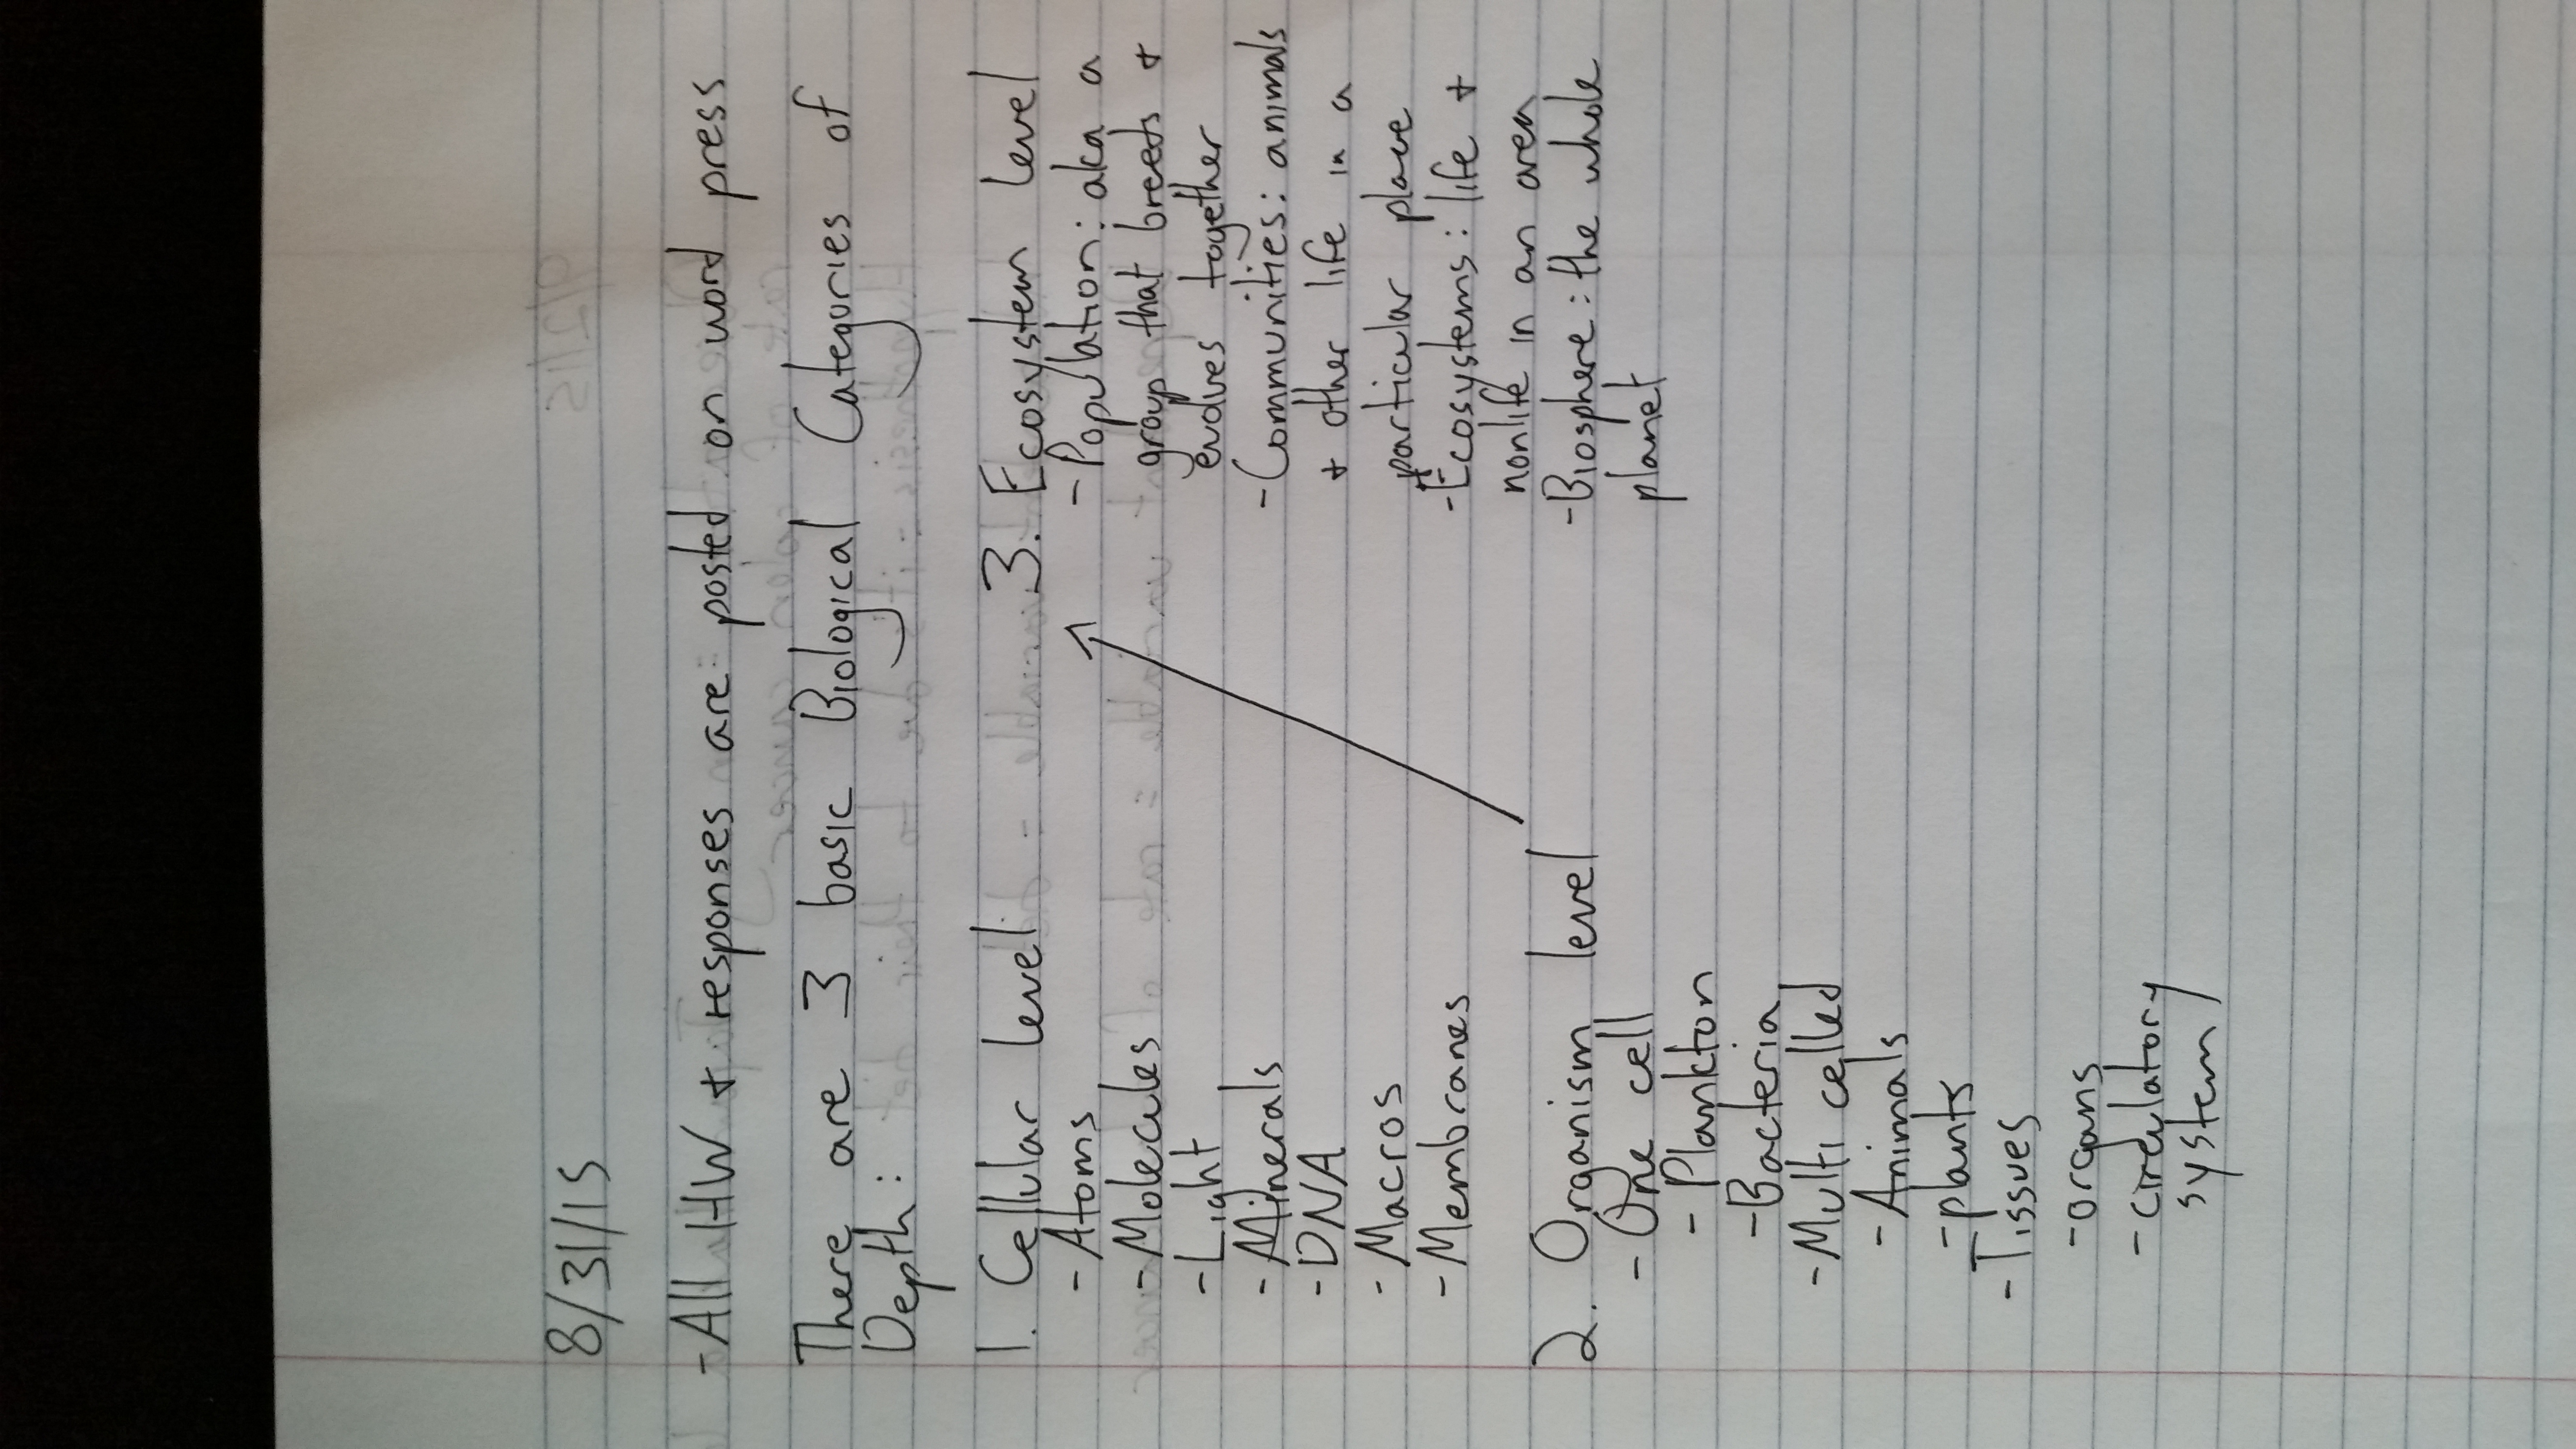 8/31/15
- All HW + responses are posted on word press
There are 3 basic Biological Categories of
Depth:
1. Cellular level
- Atoms
- Molecules
- Light
- Minerals
- DNA
- Macros
- Membranes
2. Organism level
- One cell
- Plankton
- Bacteria
- Multi celled
- Animals
- plants
- Tissues
- organs
- circulatory
system
3. Ecosystem level
- Population: aka a
group that breeds +
evolves together
- Communities: animals
+ other life in a
particular place
- Ecosystems: life +
nonlife in an area
- Biosphere: the whole
planet